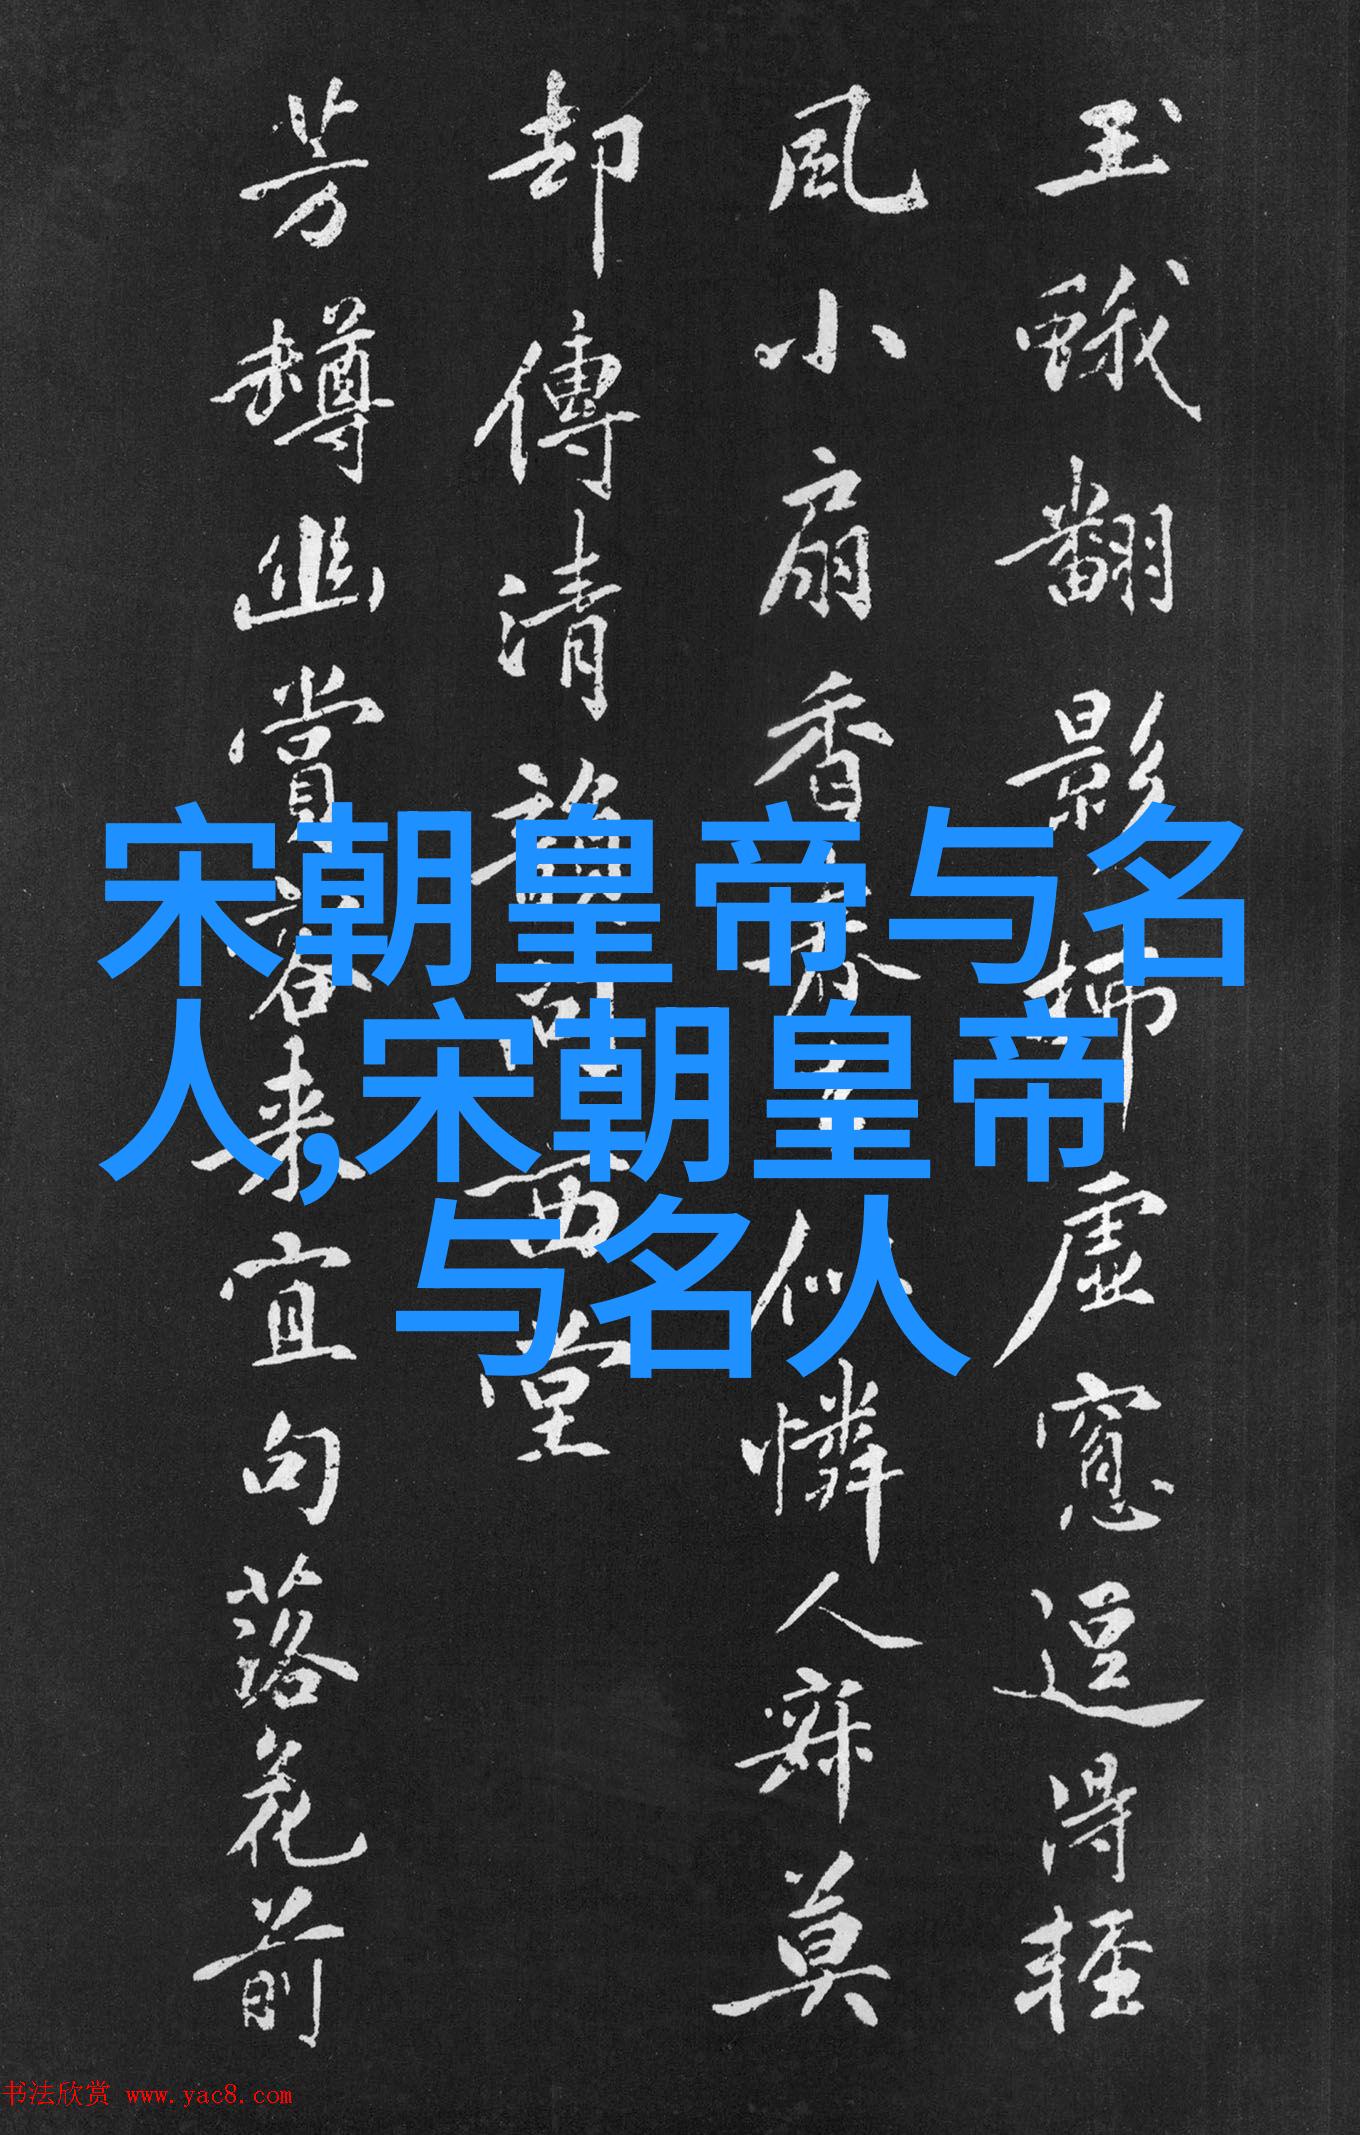 玉蛾翻影虛窻逗得輕
風小扇香似憐人寐莫
却傳清西堂
芳樽幽賞客来宜句落花前
宋朝皇帝与名
人,宋朝皇帝
与名人
书法欣赏 www.yac8.com